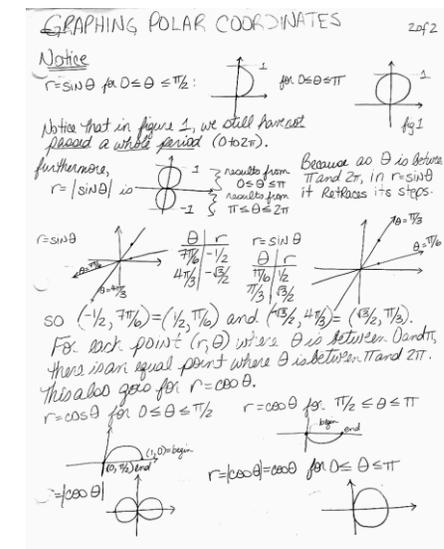 GRAPHING POLAR COORDINATES 2 of 2
Notice
r=sinθ for 0≤θ≤π/2: 1 for 0≤θ≤π 1
fig 1
Notice that in figure 1, we still have not
passed a whole period (0 to 2π).
furthermore,
r=|sinθ| is
1 results from
0≤θ≤π
-1 results from
π≤θ≤2π
Because as θ is between
π and 2π, in r=sinθ
it retraces its steps.
r=sinθ
θ=7π/6
θ=4π/3
θ r
7π/6 -1/2
4π/3 -√3/2
r=sinθ
θ r
π/6 1/2
π/3 √3/2
θ=π/3
θ=π/6
so (-1/2, 7π/6)=(1/2, π/6) and (-√3/2, 4π/3)=(√3/2, π/3).
For each point (r,θ) where θ is between 0 and π,
there is an equal point where θ is between π and 2π.
This also goes for r=cosθ.
r=cosθ for 0≤θ≤π/2 r=cosθ for π/2≤θ≤π
(1,0)=begin
(0,π/2) end
begin
end
r=|cosθ|=cosθ for 0≤θ≤π
=|cosθ|